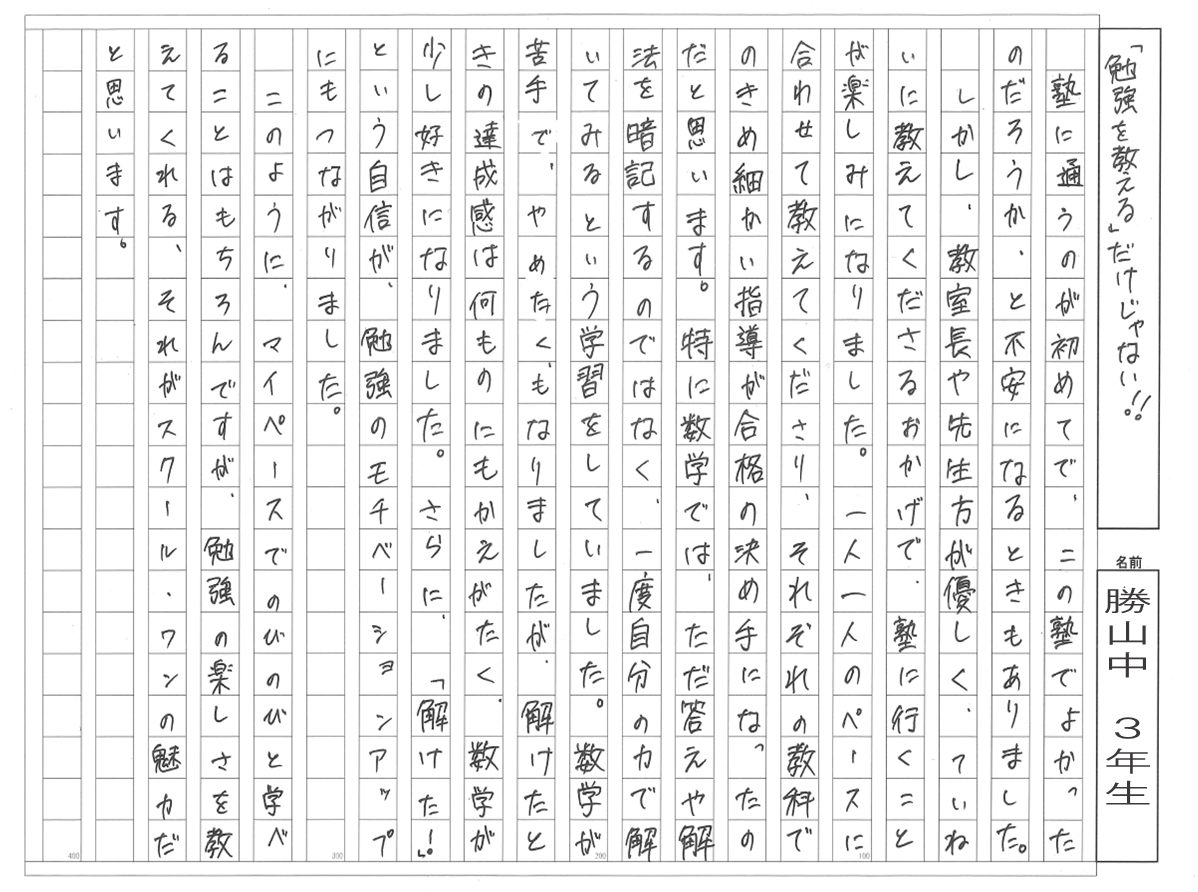 「勉強を教える」だけじゃない!!
名前
勝山中 3年生
塾に通うのが初めてで、この塾でよかった
のだろうか、と不安になるときもありました。
しかし、教室長や先生方が優しく、ていね
いに教えてくださるおかげで、塾に行くこと
が楽しみになりました。一人一人のペースに
合わせて教えてくださり、それぞれの教科で
のきめ細かい指導が合格の決め手になったの
だと思います。特に数学では、ただ答えや解
法を暗記するのではなく、一度自分の力で解
いてみるという学習をしていました。数学が
苦手で、やめたくもなりましたが、解けたと
きの達成感は何ものにもかえがたく、数学が
少し好きになりました。さらに、「解けた!」
という自信が、勉強のモチベーションアップ
にもつながりました。
このように、マイペースでのびのびと学べ
ることはもちろんですが、勉強の楽しさを教
えてくれる、それがスクール・ワンの魅力だ
と思います。
100
200
300
400